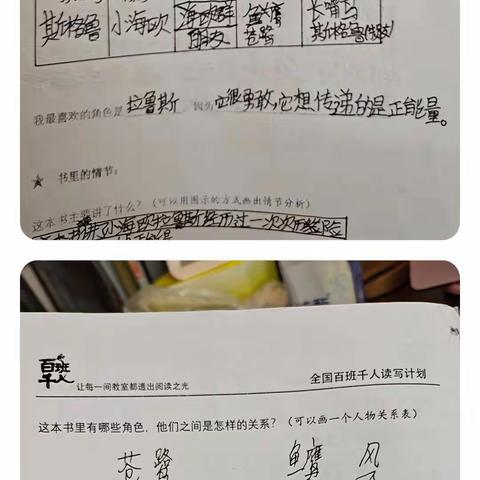 斯格鲁 小海欧 海欧群 朋友 鱼鹰 苍鹭 长嘴鸟 斯格鲁
我最喜欢的角色是 拉鲁斯 因为 它很勇敢,它想传递的是正能量。
★ 书里的情节:
这本书主要讲了什么?(可以用图示的方式画出情节分析)
小海欧拉鲁斯经历过一次次历险
百班千人 让每一间教室都透出阅读之光 全国百班千人读写计划
这本书里有哪些角色,他们之间是怎样的关系?(可以画一个人物关系表)
苍鹭 鱼鹰 风